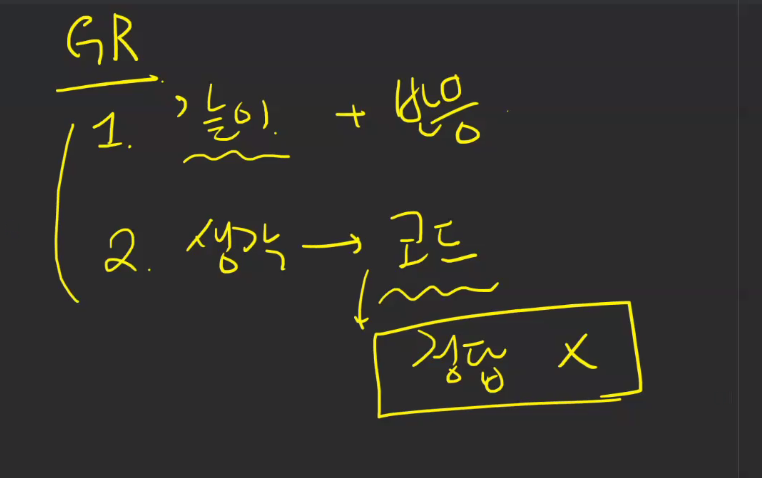 GR
1. 놀이 + 반응
2. 생각 → 코드
정답 X